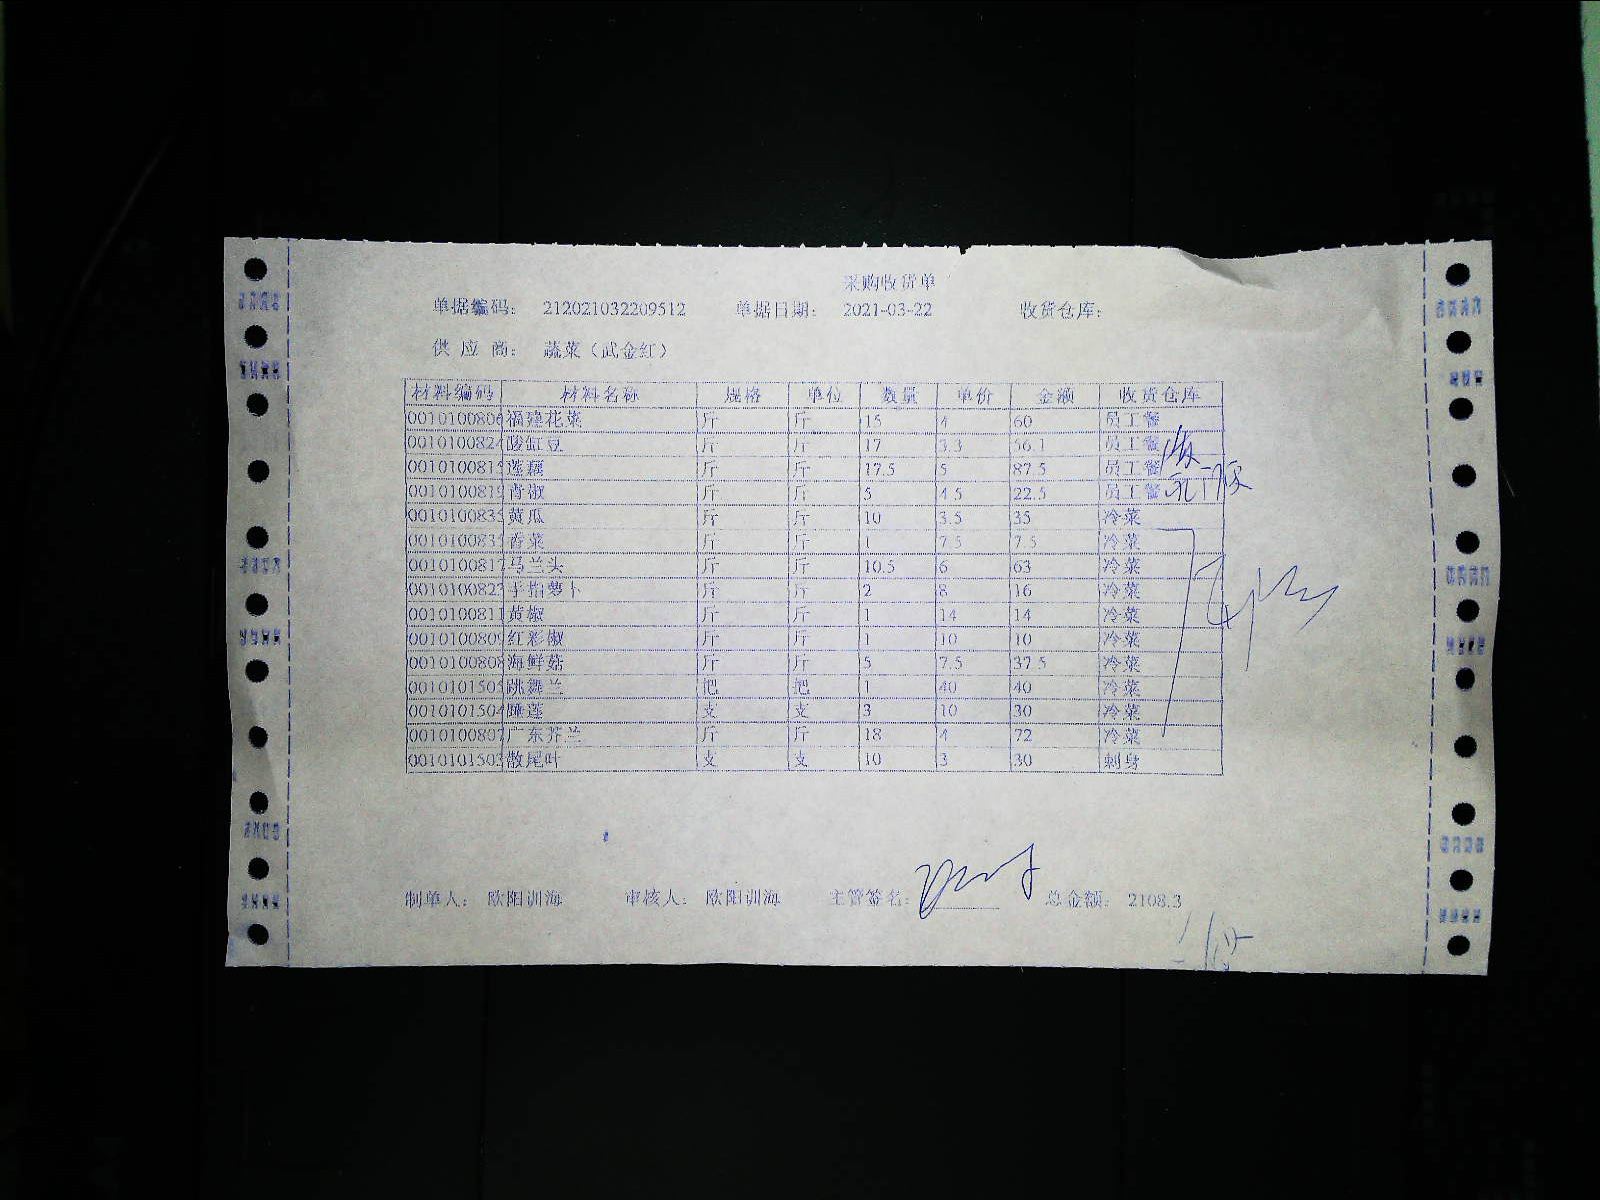 采购收货单
单据编码： 212021032209512 单据日期： 2021-03-22 收货仓库：
供 应 商： 蔬菜（武金红）
材料编码 材料名称 规格 单位 数量 单价 金额 收货仓库
0010100806 福建花菜 斤 斤 15 4 60 员工餐
001010082 酸豇豆 斤 斤 17 3.3 56.1 员工餐
001010081 莲藕 斤 斤 17.5 5 87.5 员工餐
001010081 青椒 斤 斤 5 4.5 22.5 员工餐
001010083 黄瓜 斤 斤 10 3.5 35 冷菜
001010083 香菜 斤 斤 1 7.5 7.5 冷菜
001010081 马兰头 斤 斤 10.5 6 63 冷菜
001010082 手指萝卜 斤 斤 2 8 16 冷菜
001010081 黄椒 斤 斤 1 14 14 冷菜
001010080 红彩椒 斤 斤 1 10 10 冷菜
001010080 海鲜菇 斤 斤 5 7.5 37.5 冷菜
001010150 跳舞兰 把 把 1 40 40 冷菜
001010150 睡莲 支 支 3 10 30 冷菜
001010080 广东芥兰 斤 斤 18 4 72 冷菜
001010150 散尾叶 支 支 10 3 30 刺身
制单人： 欧阳训海 审核人： 欧阳训海 主管签名： 总金额： 2108.3